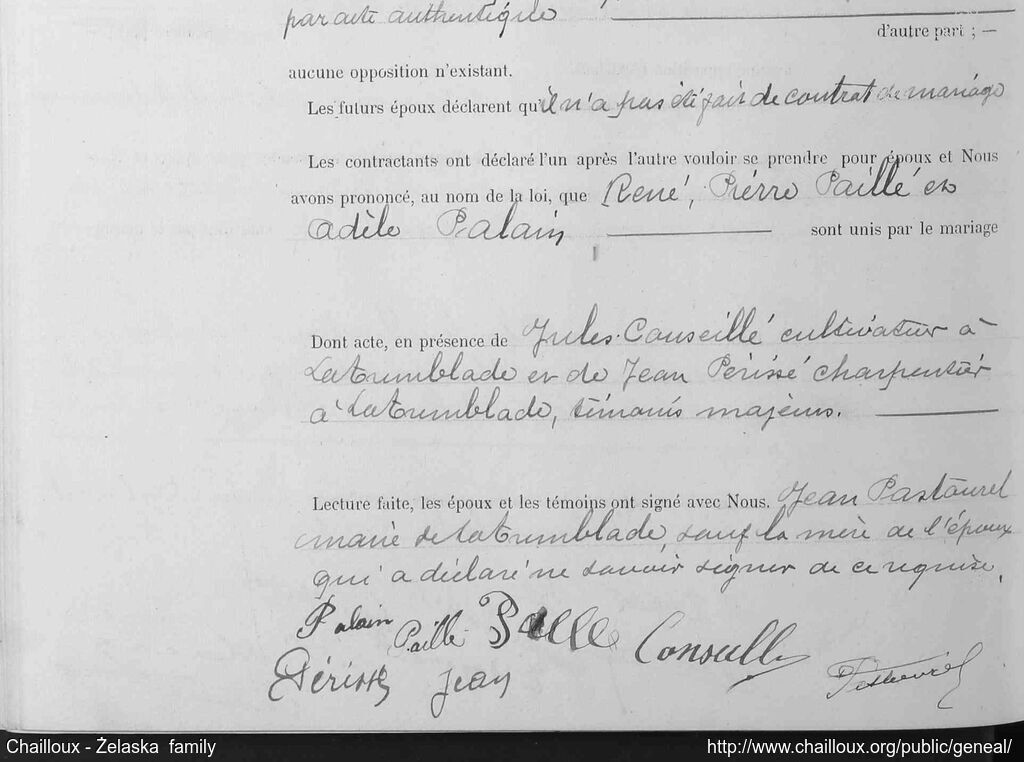 par acte authentique
d'autre part ; —
aucune opposition n'existant.
Les futurs époux déclarent qu'il n'a pas été fait de contrat de mariage
Les contractants ont déclaré l'un après l'autre vouloir se prendre pour époux et Nous
avons prononcé, au nom de la loi, que René, Pierre Paillé et
Adèle Palain sont unis par le mariage
Dont acte, en présence de Jules Conseillé cultivateur à
La Tremblade et de Jean Périssé charpentier
à La Tremblade, témoins majeurs.
Lecture faite, les époux et les témoins ont signé avec Nous. Jean Pastourel
maire de La Tremblade, sauf la mère de l'époux
qui a déclaré ne savoir signer de ce requise.
Palain Paillé Conseillé
Périssé Jean
Chailloux - Żelaska family
http://www.chailloux.org/public/geneal/